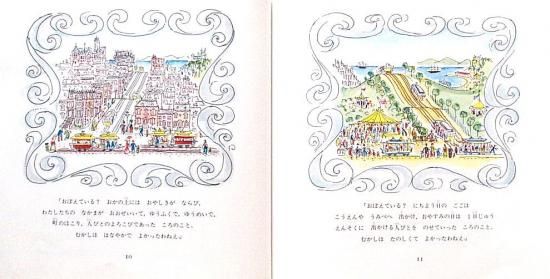 「おぼえている？ おかの上には おやしきが ならび、
わたしたちの なかまが おおぜいいて、ゆうふくで、ゆうめいで、
町のほこり、人びとのよろこびであった ころのこと。
むかしは はなやかで よかったわねえ。」
10
「おぼえている？ にちよう日の ここは
こうえんや うみべへ 出かけ、おやすみの日は 1日じゅう
えんそくに 出かける人びとを のせていった ころのこと。
むかしは たのしくて よかったわねえ。」
11